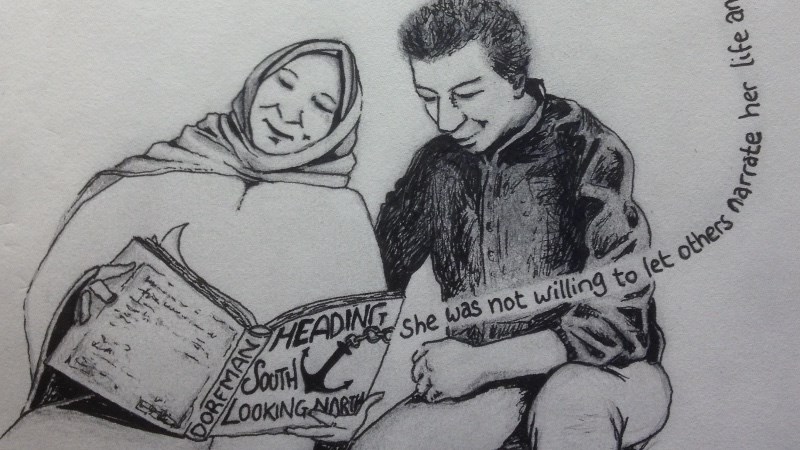 DORFMAN
HEADING
SOUTH
LOOKING NORTH
She was not willing to let others narrate her life an